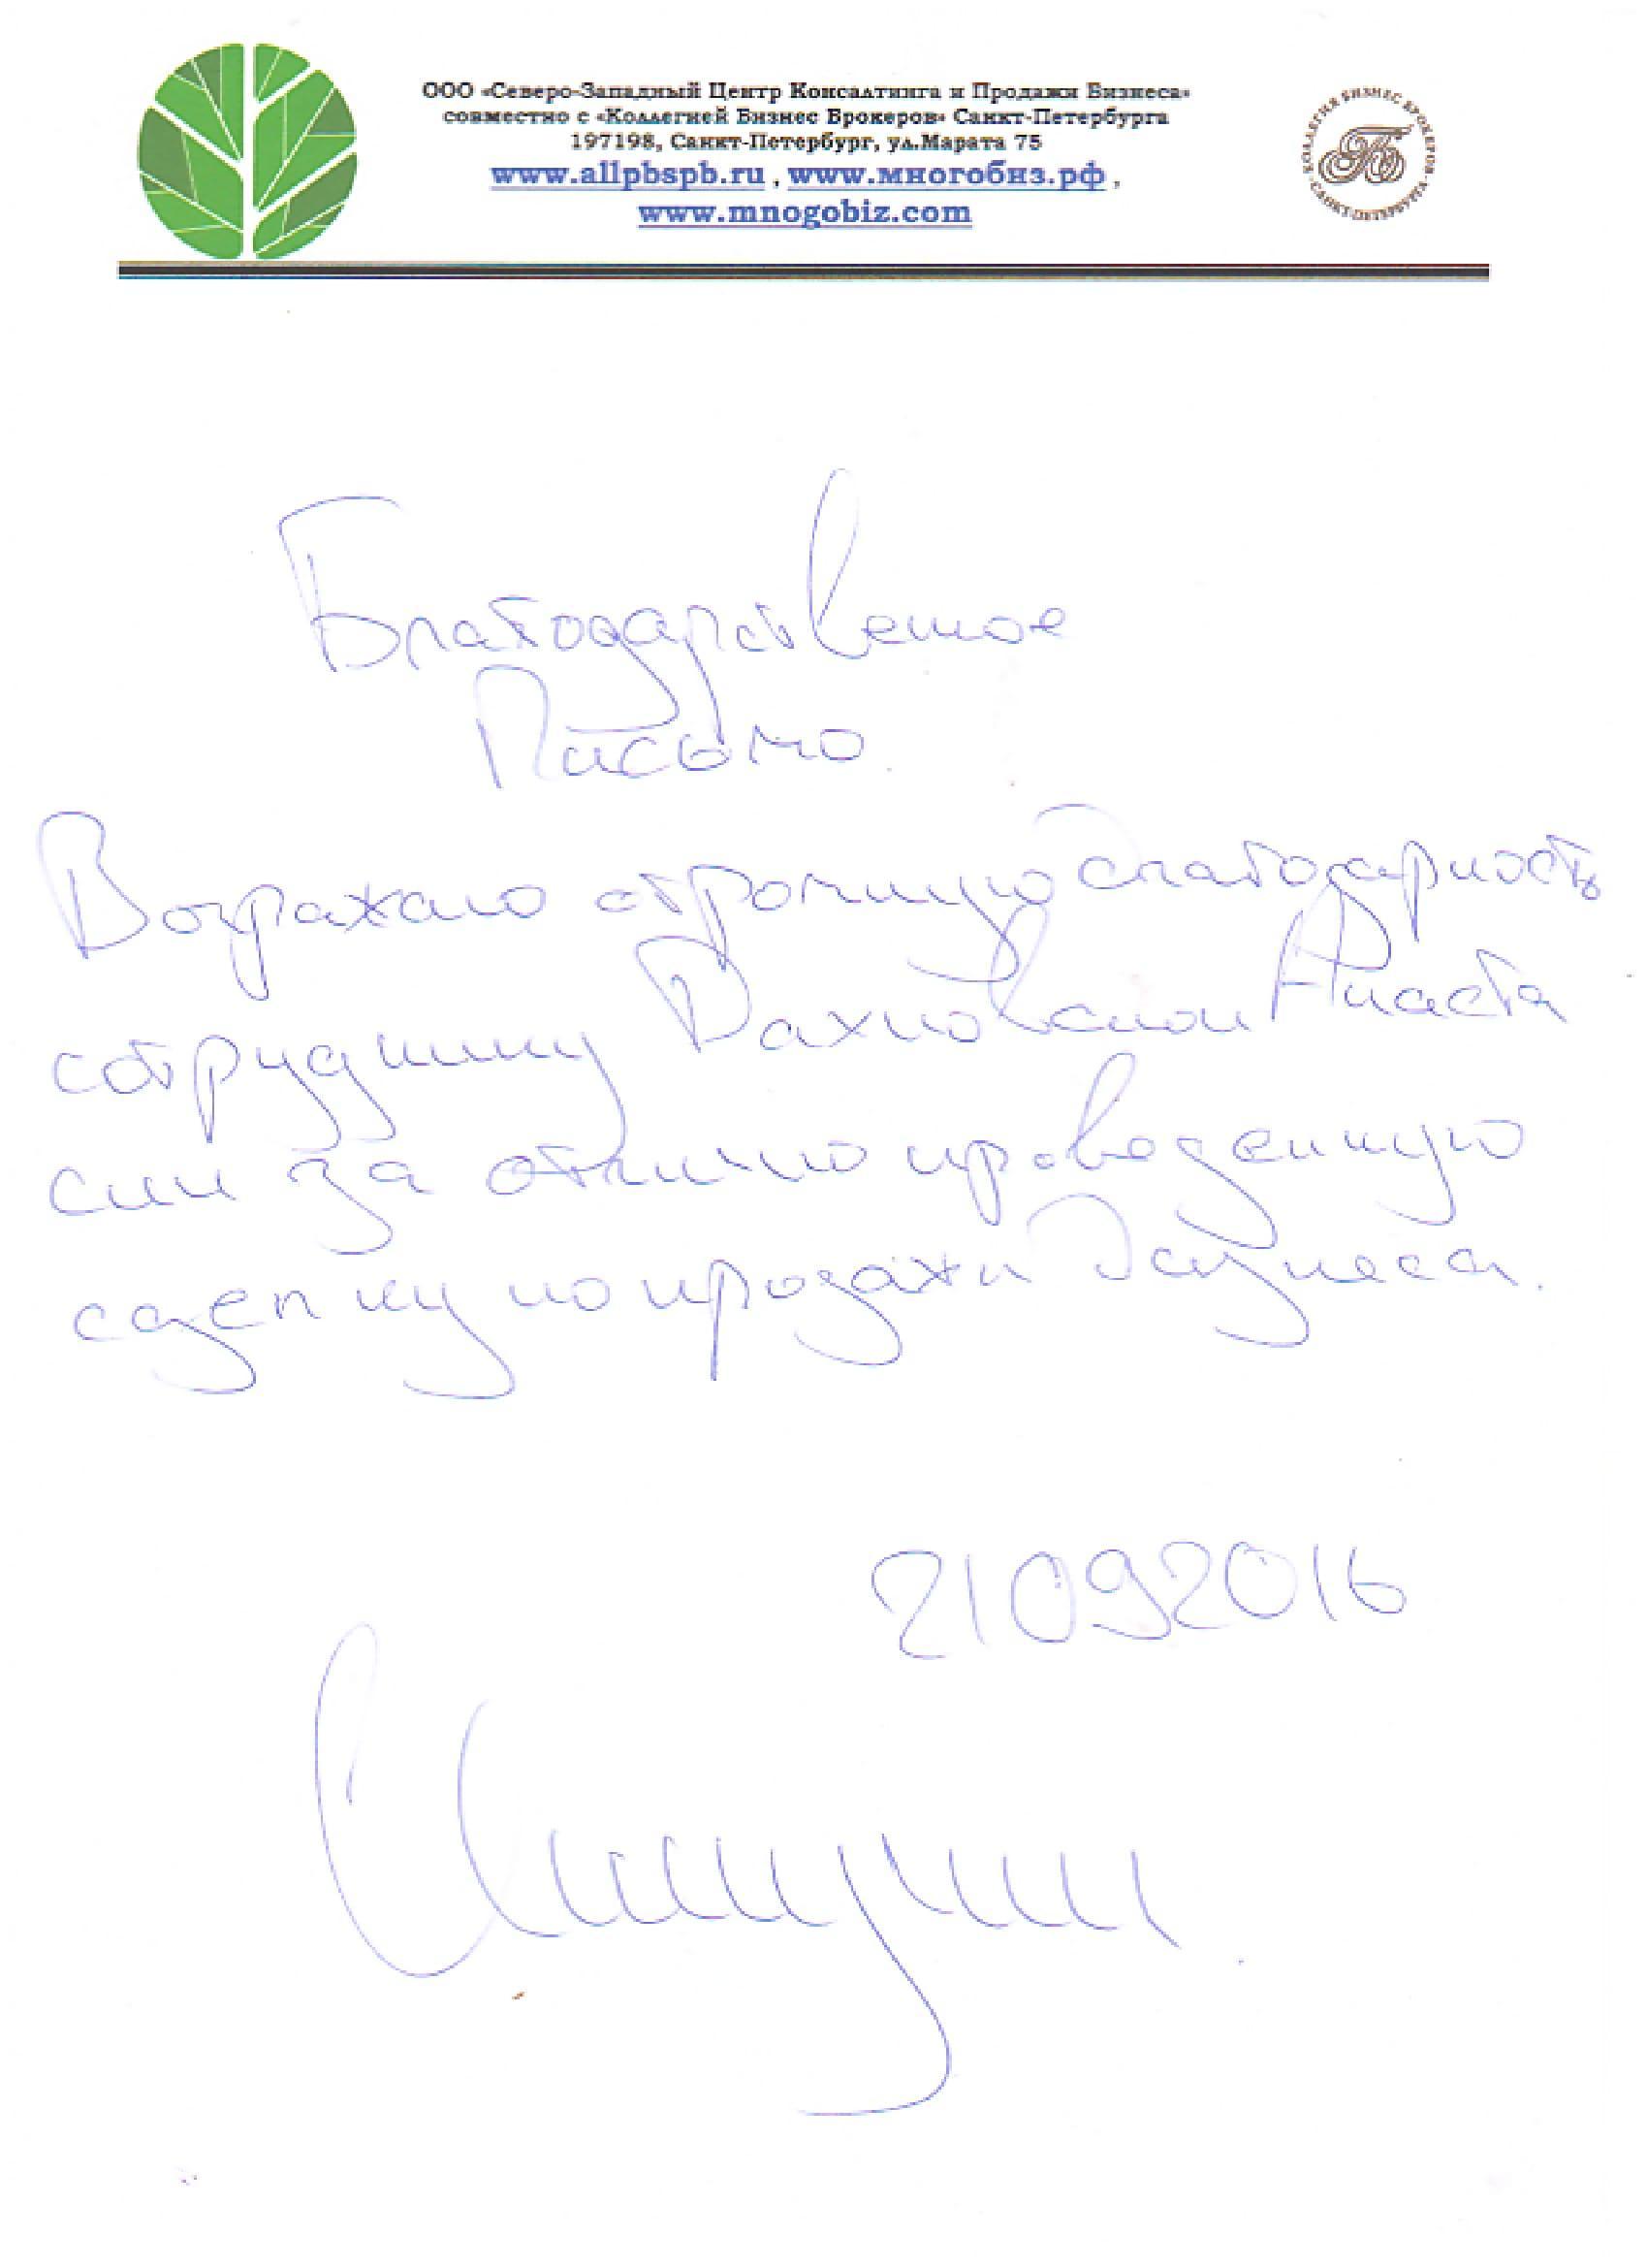 ООО «Северо-Западный Центр Консалтинга и Продажи Бизнеса»
совместно с «Коллегией Бизнес Брокеров» Санкт-Петербурга
197198, Санкт-Петербург, ул.Марата 75
www.allpbspb.ru , www.многобиз.рф ,
www.mnogobiz.com
КОЛЛЕГИЯ БИЗНЕС БРОКЕРОВ
САНКТ-ПЕТЕРБУРГА
Благодарственное
Письмо
огромную благодарность
сотруднику Вахновской Анаста
сии за отлично проведенную
сделку по продажи бизнеса.
21092016